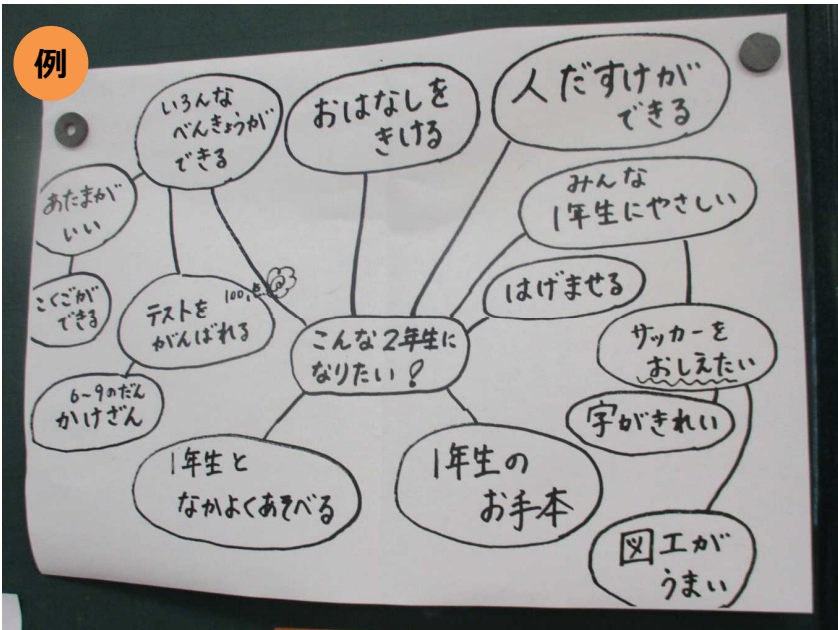 例
いろんな
べんきょうが
できる
おはなしを
きける
人だすけが
できる
あたまが
いい
みんな
1年生にやさしい
こくごが
できる
テストを
がんばれる
100点
はげませる
こんな2年生に
なりたい!
サッカーを
おしえたい
6~9のだん
かけざん
字がきれい
1年生と
なかよくあそべる
1年生の
お手本
図工が
うまい